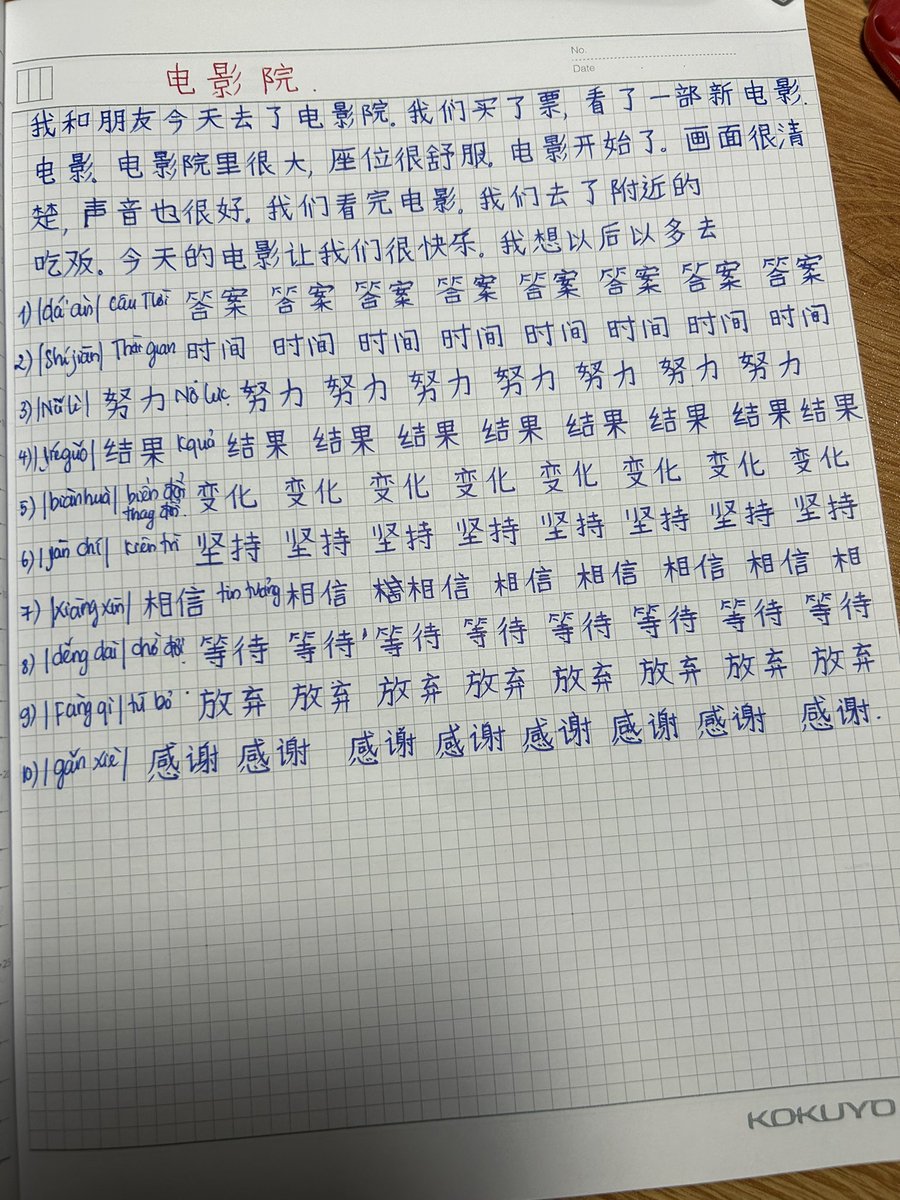 No.
Date
电影院.
我和朋友今天去了电影院. 我们买了票, 看了一部新电影.
电影. 电影院里很大, 座位很舒服. 电影开始了. 画面很清
楚, 声音也很好. 我们看完电影. 我们去了附近的
吃饭. 今天的电影让我们很快乐. 我想以后以多去
1) |dá àn| câu trả lời 答案 答案 答案 答案 答案 答案 答案 答案
2) |Shí jiān| Thời gian 时间 时间 时间 时间 时间 时间 时间 时间
3) |Nǔ lì| 努力 Nỗ lực. 努力 努力 努力 努力 努力 努力 努力
4) |jiéguǒ| 结果 kquả 结果 结果 结果 结果 结果 结果 结果 结果
5) |biànhuà| biến đổi thay đổi. 变化 变化 变化 变化 变化 变化 变化 变化
6) |jān chí| kiên trì 坚持 坚持 坚持 坚持 坚持 坚持 坚持 坚持
7) |xiāng xìn| 相信 tin tưởng 相信 相信 相信 相信 相信 相信 相
8) |děng dài| chờ đợi. 等待 等待 等待 等待 等待 等待 等待 等待
9) |Fàng qì| từ bỏ 放弃 放弃 放弃 放弃 放弃 放弃 放弃 放弃
10) |gǎn xiè| 感谢 感谢 感谢 感谢 感谢 感谢 感谢 感谢.
KOKUYO